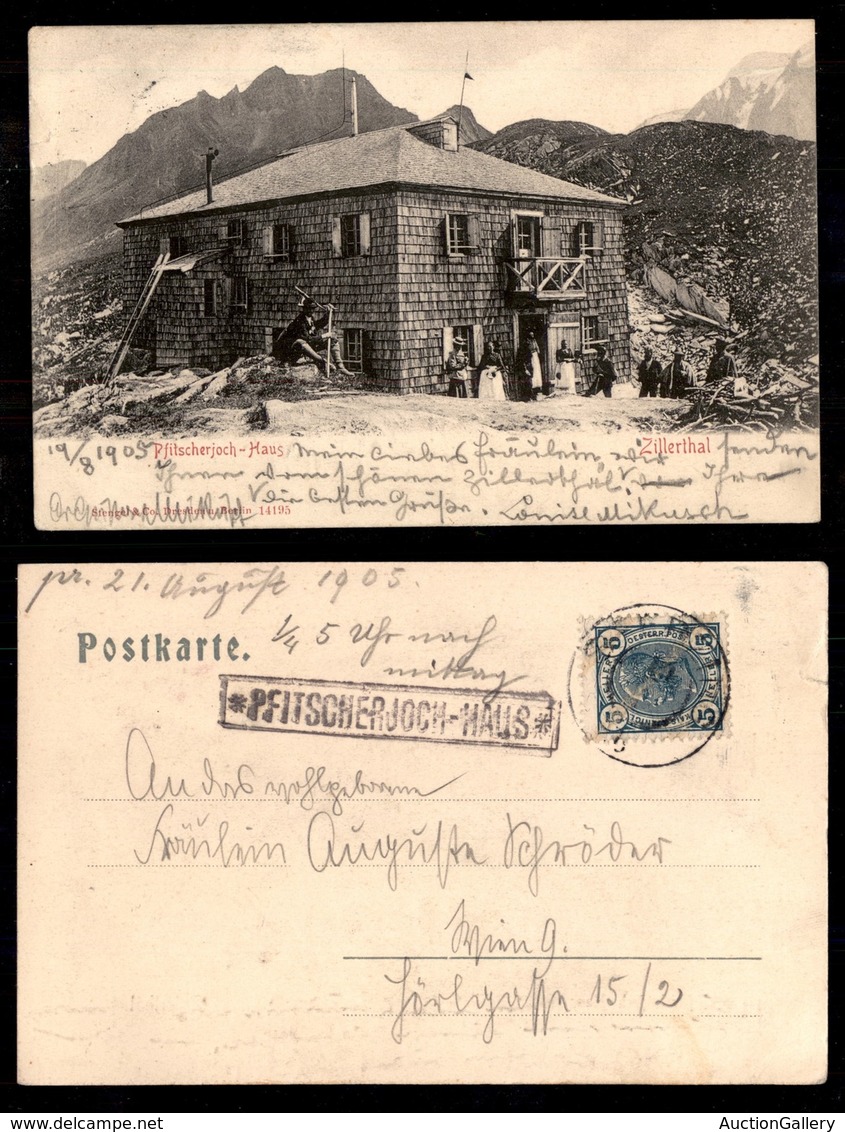 19/8 1905 Pfitscherjoch-Haus Mein liebes Fräulein, wir Zillerthal senden
Ihnen vom schönen Zillerthal, Ihre
die besten Grüße. Louise Mikusch
Stengel & Co., Dresden u. Berlin 14195
pr. 21. August 1905.
Postkarte.
1/4 5 Uhr nach
mittag
*PFITSCHERJOCH-HAUS*
5 OESTERR. POST 5
5 5
An das wohlgeborne
Fräulein Auguste Schröder
Wien 9.
Hörlgasse 15/2
AuctionGallery